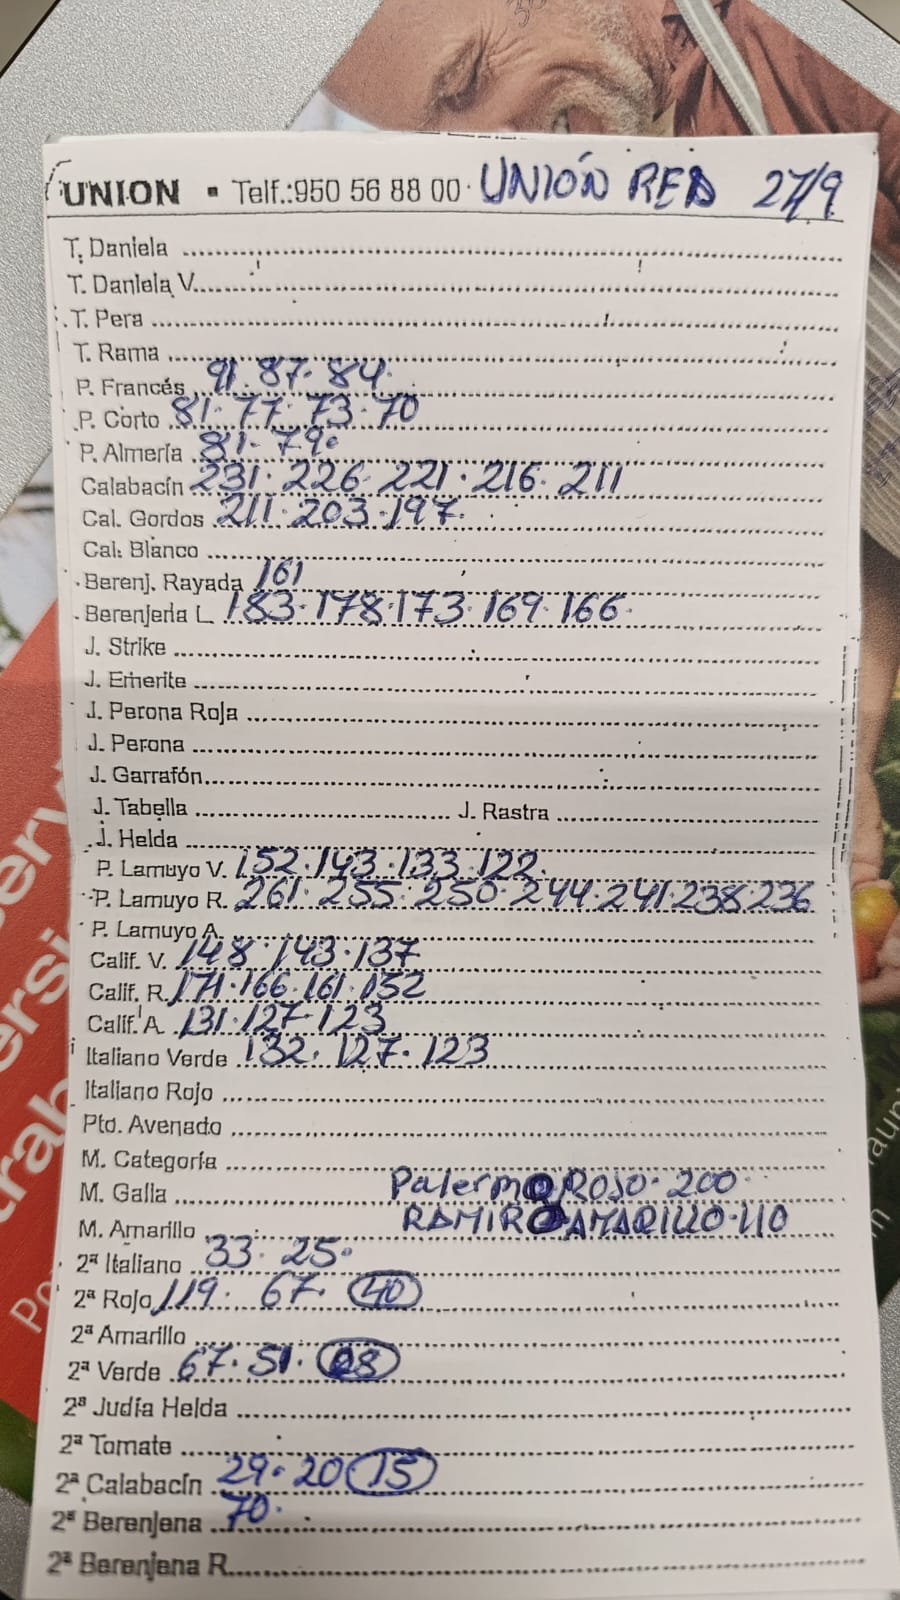 UNION ▪ Telf.:950 56 88 00 · UNIÓN RED 27/9
T. Daniela
T. Daniela V.
T. Pera
T. Rama
P. Francés 91·87·84·
P. Corto 81·77·73·70
P. Almería 81·79·
Calabacín 231·226·221·216·211
Cal. Gordos 211·203·197·
Cal. Blanco
Berenj. Rayada 161
Berenjena L. 183·178·173·169·166·
J. Strike
J. Emerite
J. Perona Roja
J. Perona
J. Garrafón
J. Tabella J. Rastra
J. Helda
P. Lamuyo V. 152·143·133·122·
P. Lamuyo R. 261·255·250·244·241·238·236
P. Lamuyo A.
Calif. V. 148·143·137
Calif. R. 171·166·161·152
Calif. A. 131·127·123
Italiano Verde 132·127·123
Italiano Rojo
Pto. Avenado
M. Categoría
M. Galia Palermo ROJO·200
M. Amarillo RAMIRO AMARILLO·110
2ª Italiano 33·25·
2ª Rojo 119·67·40
2ª Amarillo
2ª Verde 67·51·28
2ª Judía Helda
2ª Tomate
2ª Calabacín 29·20 15
2ª Berenjena 70·
2ª Berenjena R.